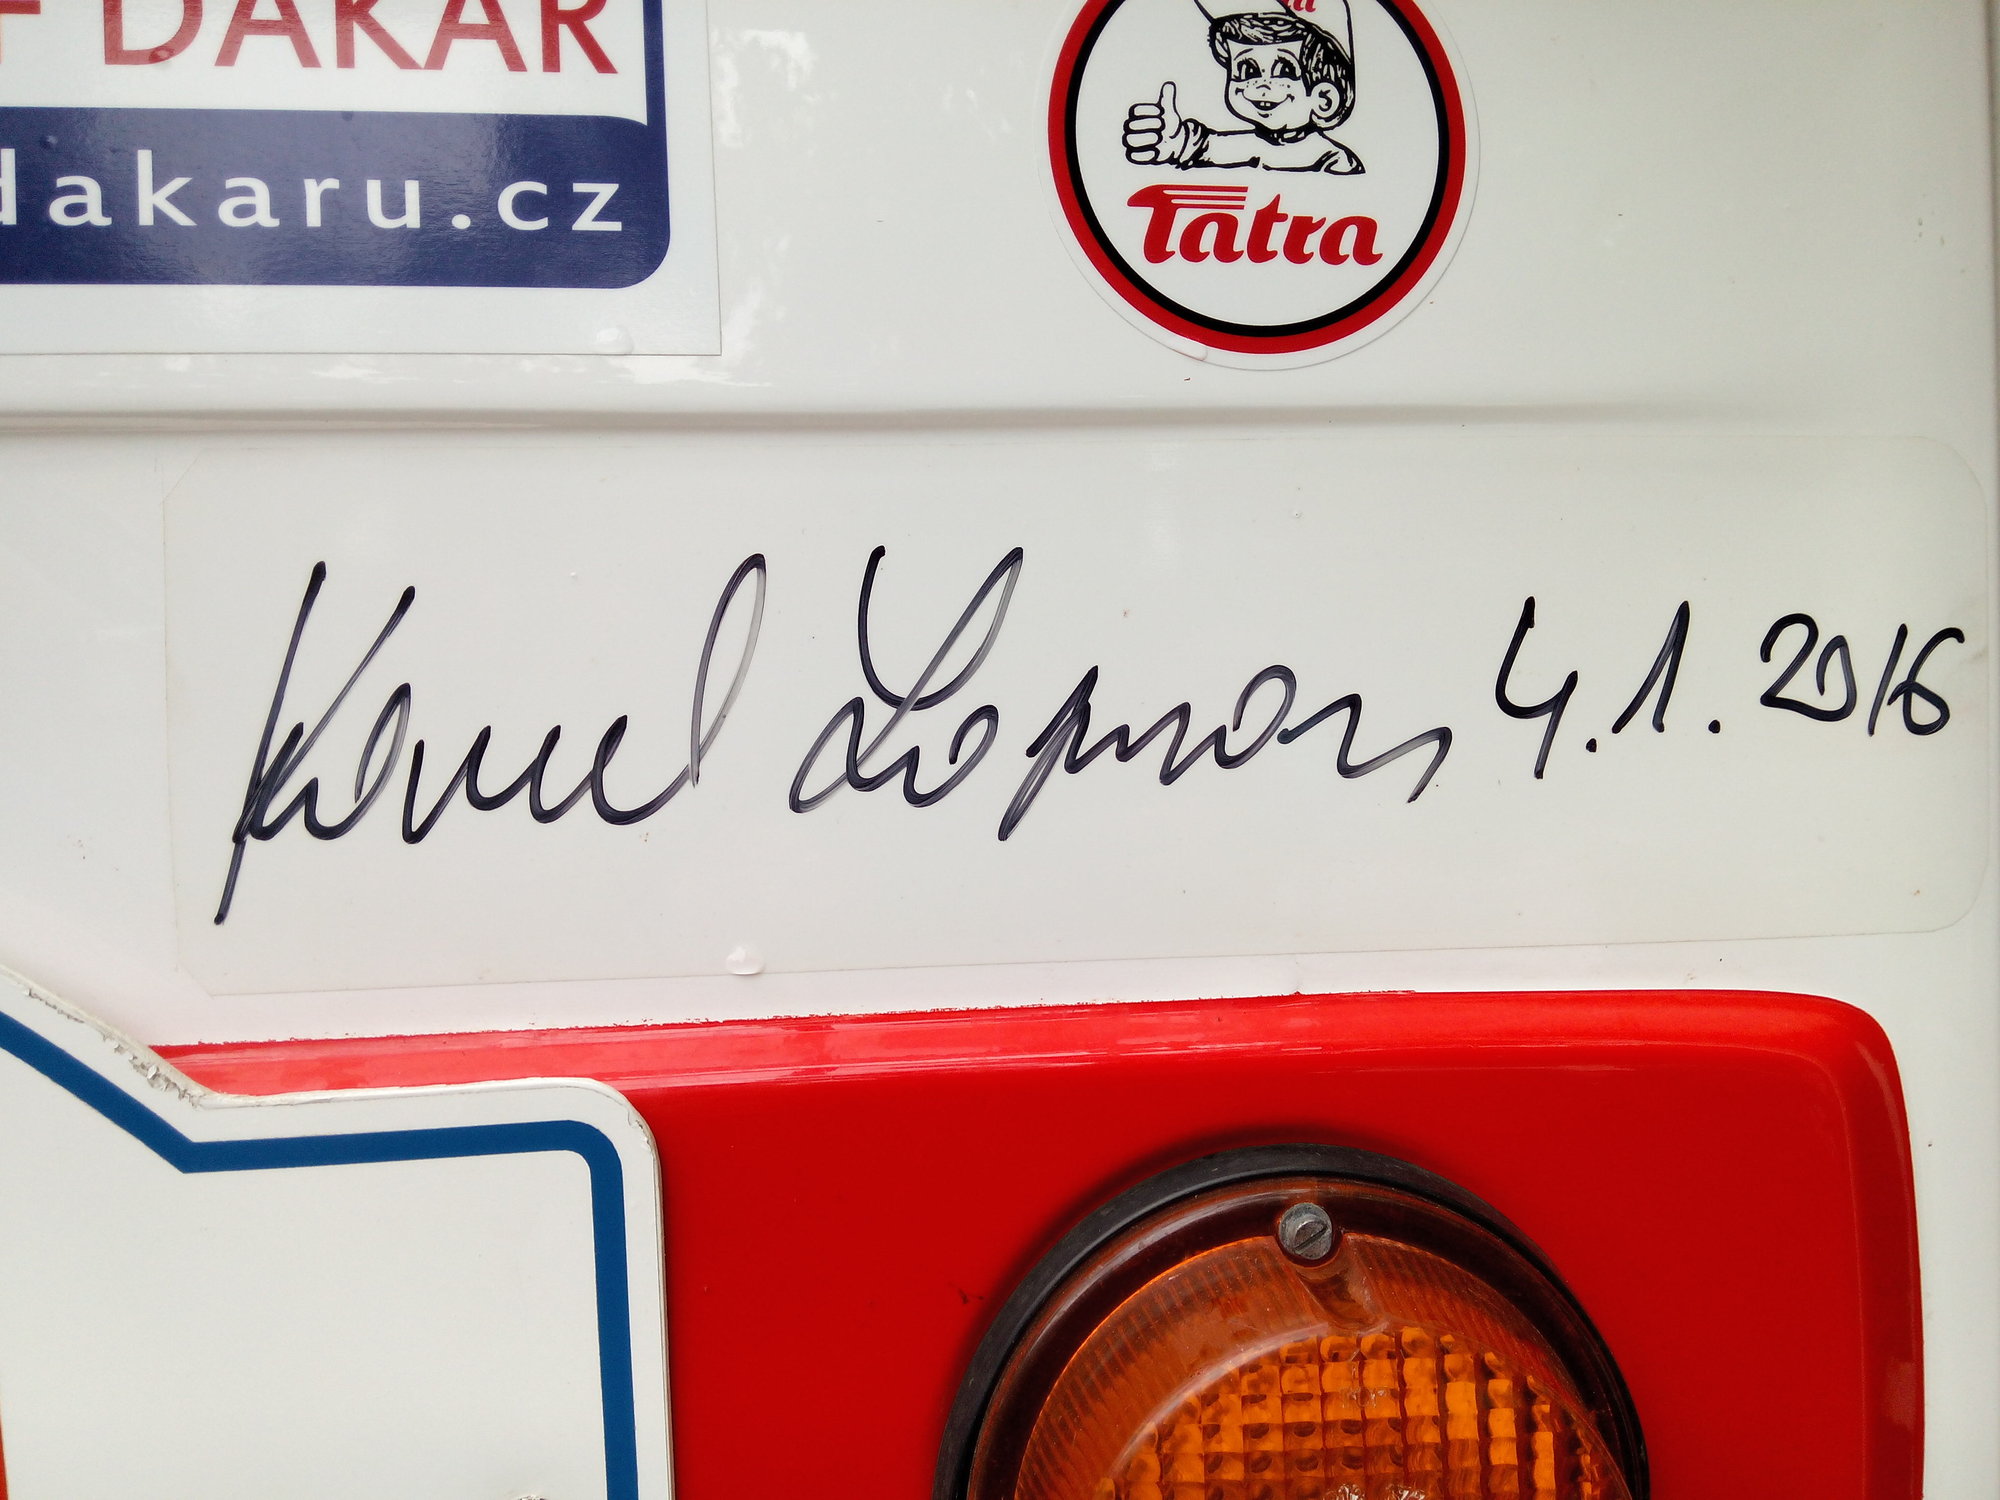 DAKAR
dakaru.cz
Tatra
Karel Loprais 4.1.2016